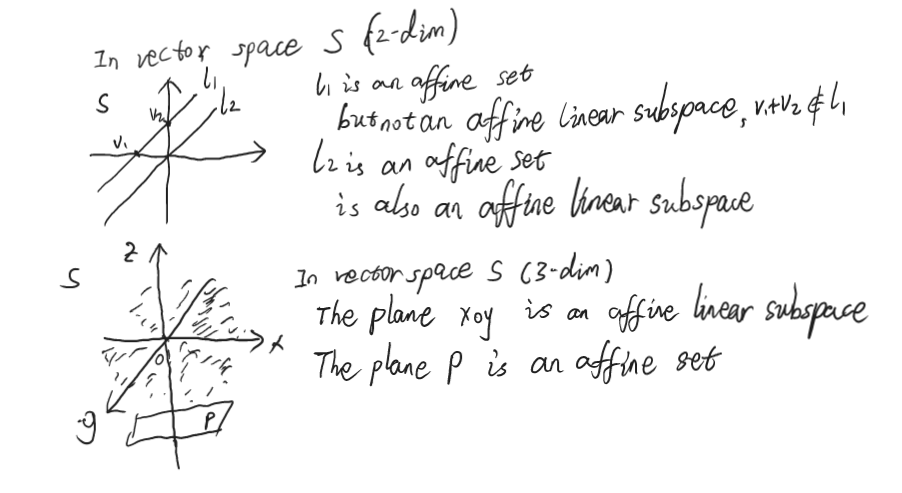 In vector space S (2-dim)
l₁
S
l₂
V₂
V₁
l₁ is an affine set
but not an affine linear subspace, v₁+v₂ ∉ l₁
l₂ is an affine set
is also an affine linear subspace
Z
S
In vector space S (3-dim)
The plane xoy is an affine linear subspace
x
O
The plane P is an affine set
y
P